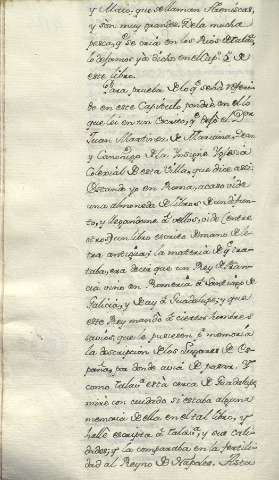 y Maio. que se llaman
y son muy grandes. De la mucha
pesca, q̃ se cria en los Rios de Talaᵃ,
lo dejamos ya dicho en el Cap.
este libro.
Para prueba de lo q̃. se ha referi-
do en este Capitulo pondre en él lo
que lei en un Escrito, q̃.
Juan Martinez de Mariana, Dean
y Canonigo de la Insigne Iglesia
Colexial de esta Villa, que dice asi:
Estando yo en Roma, acaso vide
una almoneda de libros de un defun-
to, y llegandome á vellos, vide (entre
otros) un libro escrito de mano de le-
tra antigua; la materia de q̃. tra-
taba, era decir que un Rey de Fran-
cia vino en Romeria á Santiago de
Galicia, y de ay á Guadalupe; y que
este Rey mandó á ciertos hombres
savios, que le pusiesen pʳ memoria
la descripcion de los Lugares de Es-
paña, por donde avia de pasar. Y
como Talavᵃ está cerca de Guadalupe,
miré con cuidado si estaba alguna
memoria de ella en el tal libro, y
hallé escripta á Talavᵃ, y sus cali-
dades; y la comparaba en la fertili-
dad al Reyno de Napoles.